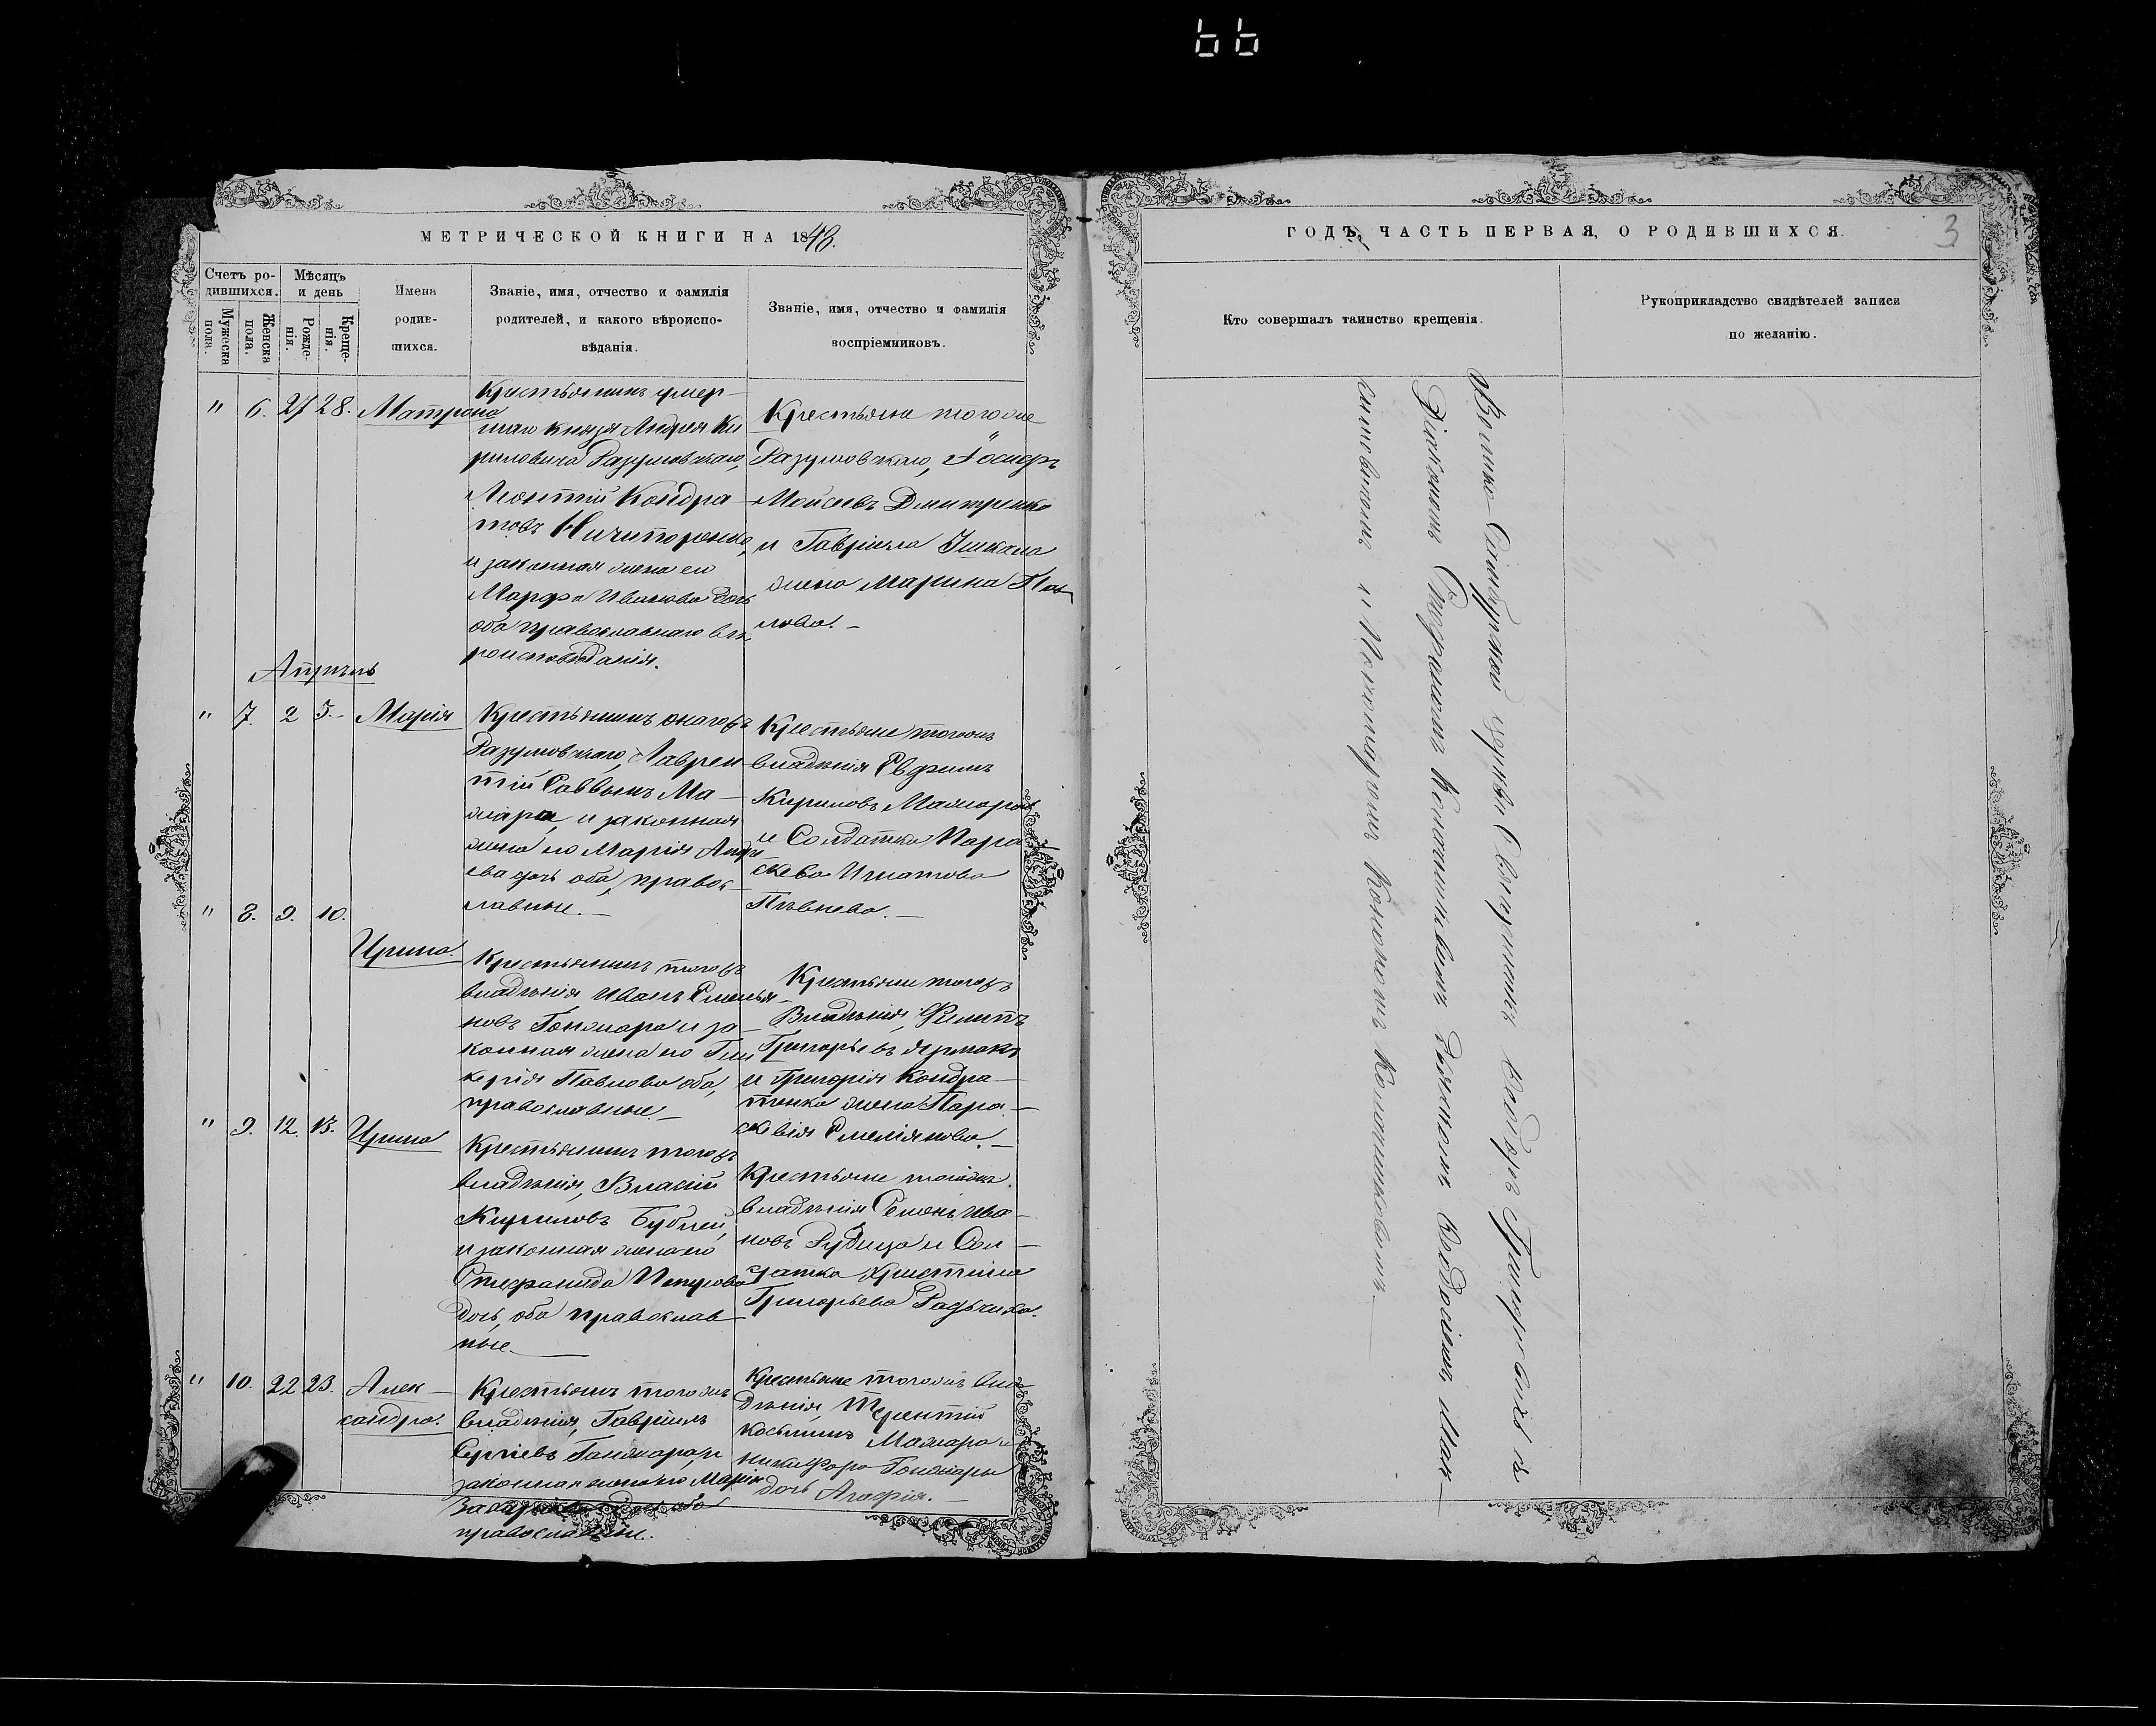 66
МЕТРИЧЕСКОЙ КНИГИ НА 1843.
Счетъ ро-
дившихся.
Мужеска
пола.
Женска
пола.
Мѣсяцъ
и день
Рожде-
нія.
Креще-
нія.
Имена
родив-
шихся.
Званіе, имя, отчество и фамилія
родителей, и какого вѣроиспо-
вѣданія.
Званіе, имя, отчество и фамилія
воспріемниковъ.
" 6. 27 28. Матрона
Крестьянинъ умер-
шаго Князя Андрея Ки
риловича Разумовскаго,
Леонтій Кондра-
товъ Ничипоренко,
и законная жена его
Марфа Иванова дочь
оба православнаго вѣ
роисповѣданія.
Крестьяне тогоже
Разумовскаго, Іосифъ
Мойсеевъ Дмитренко
и Гавріила
жена Марина Пав
лова. -
Апрѣль
" 7. 2 3.- Марія
Крестьянинъ онагожъ
Разумовскаго, Лаврен
тій Саввинъ Ма-
жара, и законная
жена его Марія Андре
ева дочь оба, правос-
лавные. -
Крестьяне тогожъ
владѣнія Евфимъ
Кириловъ Мажара
и Солдатка Пара
скева Игнатова
" 8. 9. 10.
Ирина.
Крестьянинъ тогожъ
владѣнія Иванъ Емелья-
новъ Гонжара и за-
конная жена его Гли
керія Павлова оба,
православные. -
Крестьяне тогожъ
Владѣнія, Филипъ
Григорьевъ Ярмакъ
и Григорія Кондра-
тенка жена Пара-
сквія Емеліянова. -
" 9. 12. 13. Ирина
Крестьянинъ тогожъ
владѣнія, Власій
Кириловъ Бублей,
и законная жена его
Стефанида Петрова
дочь, оба православ-
ные.
Крестьяне тогожъ
владѣнія Семенъ Ива-
новъ Рудица и Сол-
датка Христина
Григорьева
" 10. 22 23. Алек-
сандра.
Крестьянинъ тогожъ
владѣнія, Гавріилъ
Сергіевъ Ганжара, и
законная жена его Марія
православные.
Крестьяне тогожъ вла
дѣнія, Терентій
Косминъ Мажара и
Никифора Гонжары
дочь Агафія. -
ГОДЪ, ЧАСТЬ ПЕРВАЯ, О РОДИВШИХСЯ.
3
Кто совершалъ таинство крещенія.
Рукоприкладство свидѣтелей записи
по желанію.
церкви Священникъ Ѳеодоръ Григоровичъ съ
Діакономъ Стефаномъ дьячкомъ Ѳеодосіемъ Мак-
симовичемъ и Пономаремъ